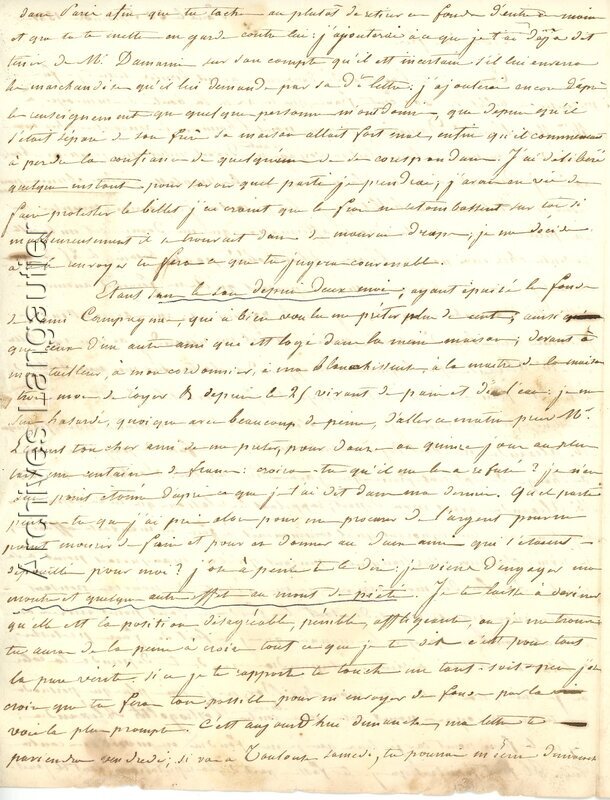 dans Paris afin que tu tache au plutôt de retirer ces fonds d'entre ses mains
et que tu te mette en garde contre lui : j'ajouterai à ce que je t'ai déjà dit
tenir de Mr. Damann sur son compte qu'il est incertain s'il lui enverra
les marchandises qu'il lui demande par sa lettre. j'ajouterai encore d'après
les renseignements que quelques personnes m'ont donnés, que depuis qu'il
s'était séparé de son frère sa maison allait fort mal, enfin qu'il commence
à perdre la confiance de quelques uns de ses correspondans. J'ai délibéré
quelques instants pour savoir quel parti je prendrai ; j'avais envie de
faire protester le billet j'ai craint que les frais ne retombassent sur toi si
malheureusement il se trouvait dans de mauvais draps ; je me décide
à te l'envoyer tu feras ce que tu jugeras convenable.
Etant sans le sou depuis deux mois, ayant épuisé les fonds
de Compagne, qui à bien voulu me prêter plus de cent, ainsi
que ceux d'un autre ami qui est logé dans la même maison ; devant à
mon tailleur, à mon cordonnier, à ma blanchisseuse à la maitre de la maison
trois mois de loyer & depuis le 25 vivant de pain et de l'eau : je me
suis hasardé, quoique avec beaucoup de peine, d'aller ce matin prier Mr.
de me preter, pour douze ou quinze jours au plus
une centaine de francs : croirais-tu qu'il me les a refusé ? je n'en
suis point étonné d'après ce que je t'ai dit dans ma derniere. Quel parti
penses-tu que j'ai pris alors pour me procurer de l'argent pour ne
point mourir de faim et pour en donner aux deux amis qui s'étaient
dépouillés pour moi ? j'ose à peine te le dire : je viens d'engager ma
montre et quelques autres effets au mont de piété. Je te laisse à deviner
qu'elle est la position désagréable, pénible, affligeante, où je me trouve
tu auras de la peine à croire tout ce que je te dis c'est pour tout
la pure verité. si ce je te rapporte te touche un tant-soit-peu je
crois que tu feras ton possible pour m'envoyer des fonds par la
voie la plus prompte. C'est aujourd'hui dimanche, ma lettre te
parviendra vendredi ; si vas à Toulouse samedi, tu pourras m'écrire dimanche
Archives l'anguanier